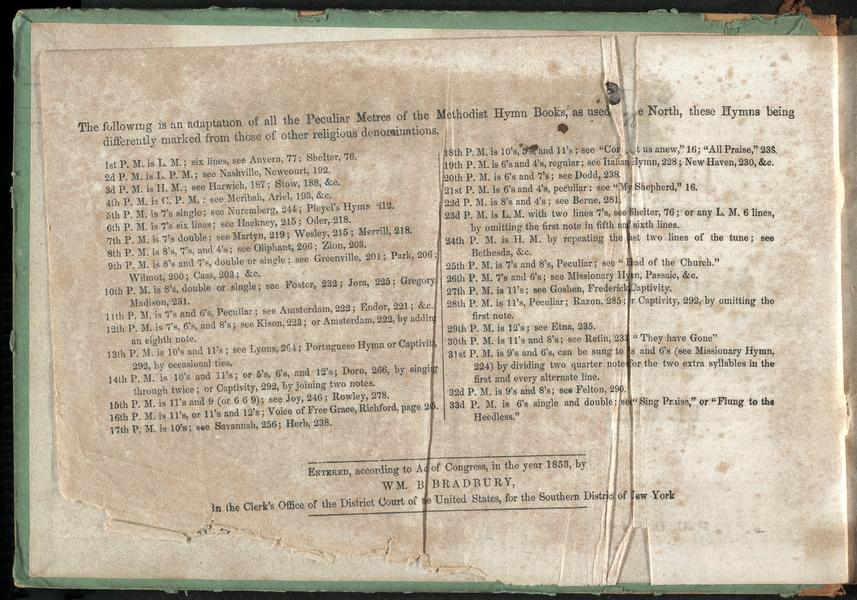 The following is an adaptation of all the Peculiar Metres of the Methodist Hymn Books, as used e North, these Hymns being
differently marked from those of other religious denominations.
1st P. M. is L. M.; six lines, see Anvern, 77; Shelter, 76.
2d P. M. is L. P. M.; see Nashville, Newcourt, 192.
3d P. M. is H. M.; see Harwich, 187; Stow, 188, &c.
4th P. M. is C. P. M.; see Meribah, Ariel, 193, &c.
5th P. M. is 7's single; see Nuremberg, 244; Pleyel's Hymn 212.
6th P. M. is 7's six lines; see Hackney, 215; Oder, 218.
7th P. M. is 7's double; see Martyn, 219; Wesley, 215; Merrill, 218.
8th P. M. is 8's, 7's, and 4's; see Oliphant, 206; Zion, 203.
9th P. M. is 8's and 7's, double or single; see Greenville, 201; Park, 206;
Wilmot, 200; Cass, 203; &c.
10th P. M. is 8's, double or single; see Foster, 232; Jora, 225; Gregory
Madison, 231.
11th P. M. is 7's and 6's, Peculiar; see Amsterdam, 222; Endor, 221; &c.
12th P. M. is 7's, 6's, and 8's; see Kison, 223; or Amsterdam, 222, by adding
an eighth note.
13th P. M. is 10's and 11's; see Lyons, 264; Portuguese Hymn or Captivity
292, by occasional ties.
14th P. M. is 10's and 11's; or 5's, 6's, and 12's; Doro, 266, by singing
through twice; or Captivity, 292, by joining two notes.
15th P. M. is 11's and 9 (or 6 6 9); see Joy, 246; Rowley, 278.
16th P. M. is 11's, or 11's and 12's; Voice of Free Grace, Richford, page
17th P. M. is 10's; see Savannah, 256; Herb, 238.
18th P. M. is 10's, 5's, and 11's; see "Co t us anew," 16; "All Praise," 238.
19th P. M. is 6's and 4's, regular; see Italian Hymn, 228; New Haven, 230, &c.
20th P. M. is 6's and 7's; see Dodd, 238.
21st P. M. is 6's and 4's, peculiar; see "My Shepherd," 16.
22d P. M. is 8's and 4's; see Berne, 281.
23d P. M. is L. M. with two lines 7's, see Shelter, 76; or any L. M. 6 lines,
by omitting the first note in fifth and sixth lines.
24th P. M. is H. M. by repeating the last two lines of the tune; see
Bethesda, &c.
25th P. M. is 7's and 8's, Peculiar; see " ad of the Church."
26th P. M. 7's and 6's; see Missionary Hymn, Passaic, &c.
27th P. M. is 11's; see Goshen, Frederick, Captivity.
28th P. M. is 11's, Peculiar; Razon, 285; r Captivity, 292, by omitting the
first note.
29th P. M. is 12's; see Etna, 235.
30th P. M. is 11's and 8's; see Retin, 233 "They have Gone"
31st P. M. is 9's and 6's, can be sung to 's and 6's (see Missionary Hymn,
224) by dividing two quarter notes for the two extra syllables in the
first and every alternate line.
32d P. M. is 9's and 8's; see Felton, 290.
33d P. M. is 6's single and double; see "Sing Praise," or "Flung to the
Heedless."
ENTERED, according to Act of Congress, in the year 1853, by
WM. B BRADBURY,
In the Clerk's Office of the District Court of e United States, for the Southern District of New York